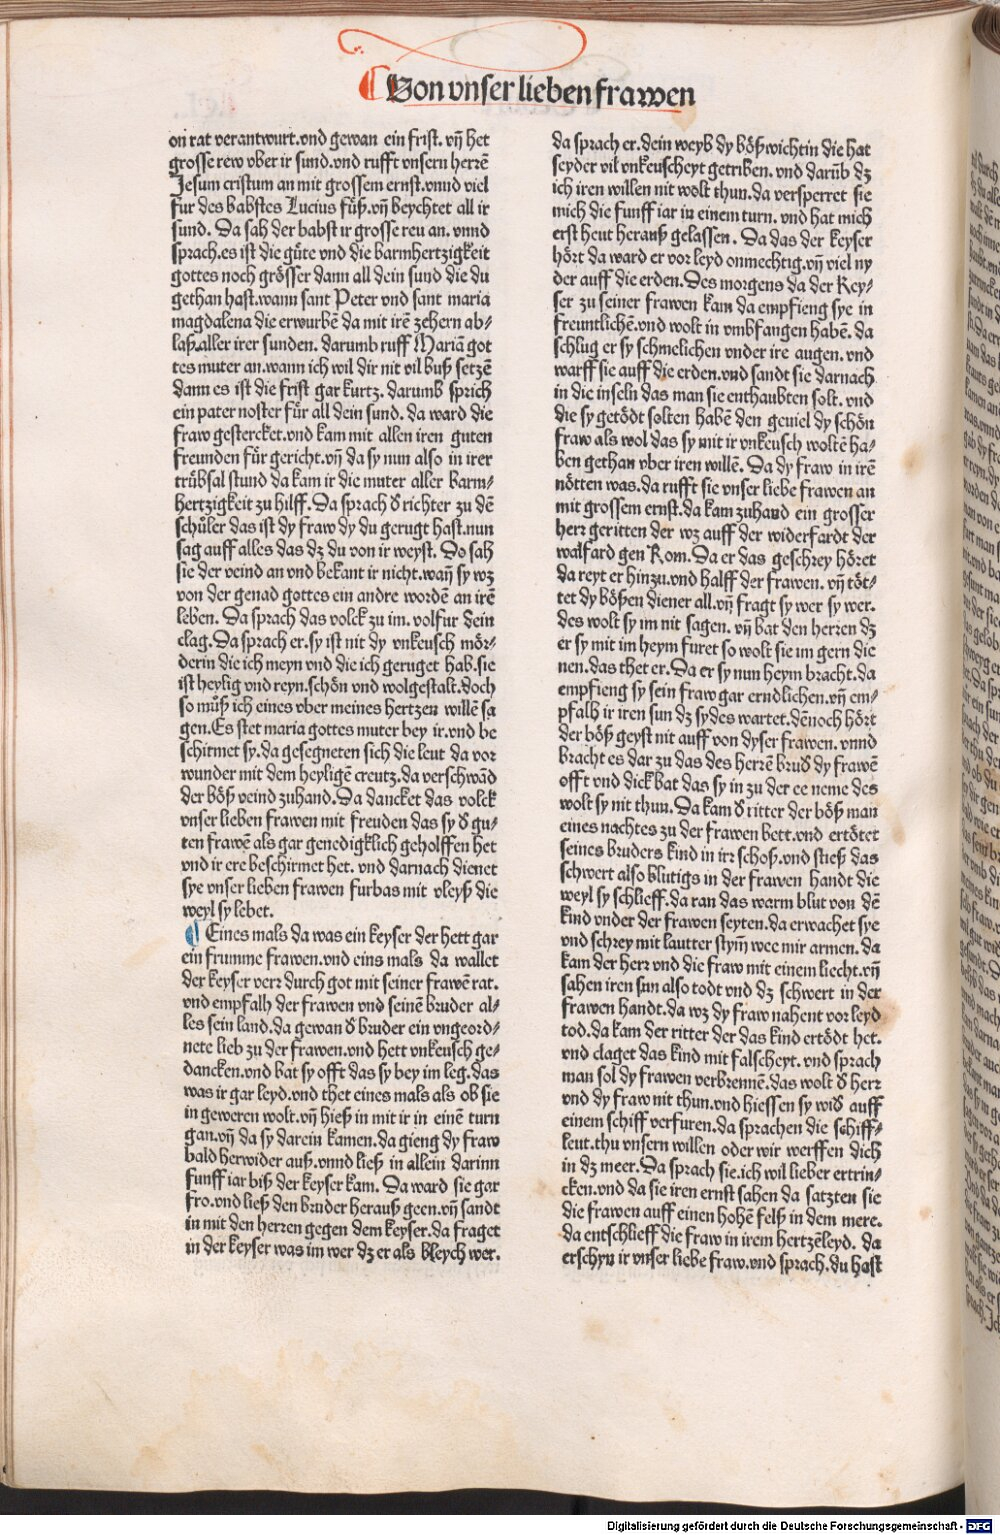 Von vnser lieben frawen
on rat verantwurt.vnd gewan ein frist. vn̄ het
grosse rew vber ir sund.vnd rufft vnsern herrē
Jesum cristum an mit grossem ernst.vnnd viel
fur des babstes Lucius fuͤß.vn̄ beychtet all ir
sund. Da sah der babst ir grosse reu an. vnnd
sprach.es ist die guͤte vnd die barmhertzigkeit
gottes noch groͤsser dann all dein sund die du
gethan hast.wann sant Peter vnd sant maria
magdalena die erwurbē da mit irē zehern ab⸗
laß.aller irer sunden. darumb ruff Mariā got
tes muter an.wann ich wil dir nit vil buß setzē
dann es ist die frist gar kurtz. darumb sprich
ein pater noster fuͤr all dein sund. da ward die
fraw gestercket.vnd kam mit allen iren guten
freunden fuͤr gericht.vn̄ da sy nun also in irer
truͤbsal stund da kam ir die muter aller barm⸗
hertzigkeit zu hilff. Da sprach d̓ richter zu dē
schuͤler das ist dy fraw dy du gerugt hast.nun
sag auff alles das dz du von ir weyst. Do sah
sie der veind an vnd bekant ir nicht.wan̄ sy wz
von der genad gottes ein andre wordē an irē
lebēn. Da sprach das volck zu im. volfur dein
clag. Da sprach er.sy ist nit dy vnkeusch moͤr⸗
derin die ich meyn vnd die ich geruget hab.sie
ist heylig vnd reyn.schoͤn vnd wolgestalt.doch
so muͤß ich eines vber meines hertzen willē sa
gen.Es stet maria gottes muter bey ir.vnd be
schirmet sy.da gesegneten sich die leut da vor
wunder mit dem heyligē creutz.da verschwād
der boͤß veind zuhand.Da dancket das volck
vnser lieben frawen mit freuden das sy d̓ gu⸗
ten frawē als gar genedigklich geholffen het
vnd ir ere beschirmet het. vnd darnach dienet
sye vnser lieben frawen furbas mit vleyß die
weyl sy lebet.
¶ Eines mals da was ein keyser der hett gar
ein frumme frawen.vnd eins mals da wallet
der keyser verr durch got mit seiner frawē rat.
vnd empfalh der frawen vnd seinē bruder al⸗
les sein land.da gewan d̓ bruder ein vngeord⸗
nete lieb zu der frawen.vnd hett vnkeusch ge⸗
dancken.vnd bat sy offt das sy bey im leg.das
was ir gar leyd.vnd thet eines mals als ob sie
in geweren wolt.vn̄ hieß in mit ir in einē turn
gan.vn̄ da sy darein kamen.da gieng dy fraw
bald herwider auß.vnnd ließ in allein darinn
funff iar biß der keyser kam. Da ward sie gar
fro.vnd ließ den bruder herauß geen.vn̄ sandt
in mit den herren gegen dem keyser.da fraget
in der keyser was im wer dz er als bleych wer.
da sprach er.dein weyb dy boͤßwichtin die hat
seyder vil vnkeuscheyt getriben. vnd darūb dz
ich iren willen nit wolt thun.da versperret sie
mich die funff iar in einem turn. vnd hat mich
erst heut herauß gelassen. Da das der keyser
hoͤrt da ward er vor leyd onmechtig.vn̄ viel ny
der auff die erden.Des morgens da der Key⸗
ser zu seiner frawen kam da empfieng sye in
freuntlichē.vnd wolt in vmbfangen habē. da
schlug er sy schmelichen vnder ire augen. vnd
warff sie auff die erden.vnd sandt sie darnach
in die inseln das man sie enthaubten solt. vnd
die sy getoͤdt solten habē den geuiel dy schoͤn
fraw als wol das sy mit ir vnkeusch woltē ha⸗
ben gethan vber iren willē. Da dy fraw in irē
noͤtten was.da rufft sie vnser liebe frawen an
mit grossem ernst.da kam zuhand ein grosser
herr geritten der wz auff der widerfardt der
walfard gen Rom. Da er das geschrey hoͤret
da reyt er hinzu.vnd halff der frawen. vn̄ toͤt⸗
tet dy boͤßen diener all.vn̄ fragt sy wer sy wer.
des wolt sy im nit sagen. vn̄ bat den herren dz
er sy mit im heym furet so wolt sie im gern die
nen.das thet er.Da er sy nun heym bracht.da
empfieng sy sein fraw gar erndlichen.vn̄ em⸗
pfalh ir iren sun dz sy des wartet.dēnoch hoͤrt
der boͤß geyst nit auff von dyser frawen. vnnd
bracht es dar zu das des herrē brud̓ dy frawē
offt vnd dick bat das sy in zu der ee neme des
wolt sy nit thun. Da kam d̓ ritter der boͤß man
eines nachtes zu der frawen bett.vnd ertoͤtet
seines bruders kind in irr schoß.vnd stieß das
schwert also blutigs in der frawen handt die
weyl sy schlieff.da ran das warm blut von dē
kind vnder der frawen seyten.da erwachet sye
vnd schrey mit lautter stym̄ wee mir armen. da
kam der herr vnd die fraw mit einem liecht.vn̄
sahen iren sun also todt vnd dz schwert in der
frawen handt.da wz dy fraw nahent vor leyd
tod.da kam der ritter der das kind ertoͤdt het.
vnd claget das kind mit falscheyt. vnd sprach
man sol dy frawen verbrennē.das wolt d̓ herr
vnd dy fraw nit thun.vnd hiessen sy wid̓ auff
einem schiff verfuren.da sprachen die schiff⸗
leut.thu vnsern willen oder wir werffen dich
in dz meer.Da sprach sie.ich wil lieber ertrin⸗
cken.vnd da sie iren ernst sahen da satzten sie
die frawen auff einen hohē felß in dem mere.
da entschlieff die fraw in irem hertzēleyd. da
erschyn ir vnser liebe fraw.vnd sprach.du hast
Digitalisierung gefördert durch die Deutsche Forschungsgemeinschaft - DFG